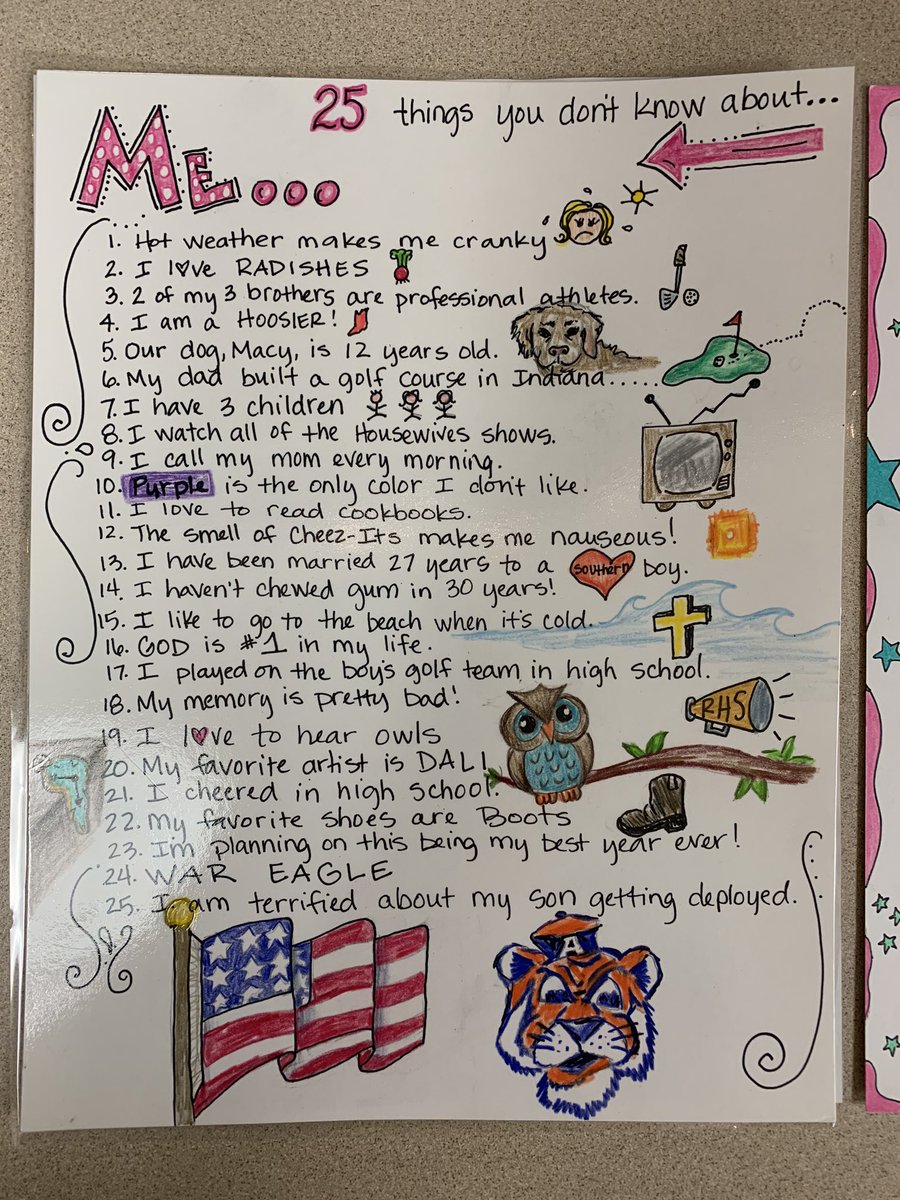 25 things you don't know about...
ME...
1. Hot weather makes me cranky
2. I l♥ve RADISHES
3. 2 of my 3 brothers are professional athletes.
4. I am a HOOSIER!
5. Our dog, Macy, is 12 years old.
6. My dad built a golf course in Indiana.....
7. I have 3 children
8. I watch all of the Housewives shows.
9. I call my mom every morning.
10. Purple is the only color I don't like.
11. I love to read cookbooks.
12. The smell of Cheez-Its makes me nauseous!
13. I have been married 27 years to a southern boy.
14. I haven't chewed gum in 30 years!
15. I like to go to the beach when it's cold.
16. GOD is #1 in my life.
17. I played on the boy's golf team in high school.
18. My memory is pretty bad!
RHS
19. I l♥ve to hear owls
20. My favorite artist is DALI
21. I cheered in high school.
22. My favorite shoes are Boots
23. Im planning on this being my best year ever!
24. WAR EAGLE
25. I am terrified about my son getting deployed.
A